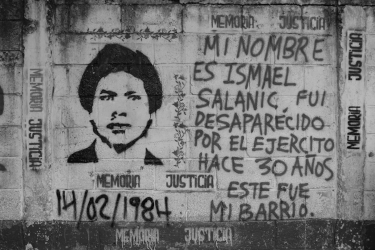 MEMORIA JUSTICIA
MI NOMBRE
ES ISMAEL
SALANIC, FUI
DESAPARECIDO
POR EL EJERCITO
HACE 30 AÑOS
ESTE FUE
MI BARRIO.
MEMORIA JUSTICIA
MEMORIA JUSTICIA
14/02/1984
MEMORIA JUSTICIA
MEMORIA JUSTICIA